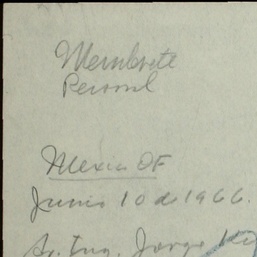 Membrete
Personal
Mexico DF
Junio 10 de 1966.
Sr. Ing. Jorge